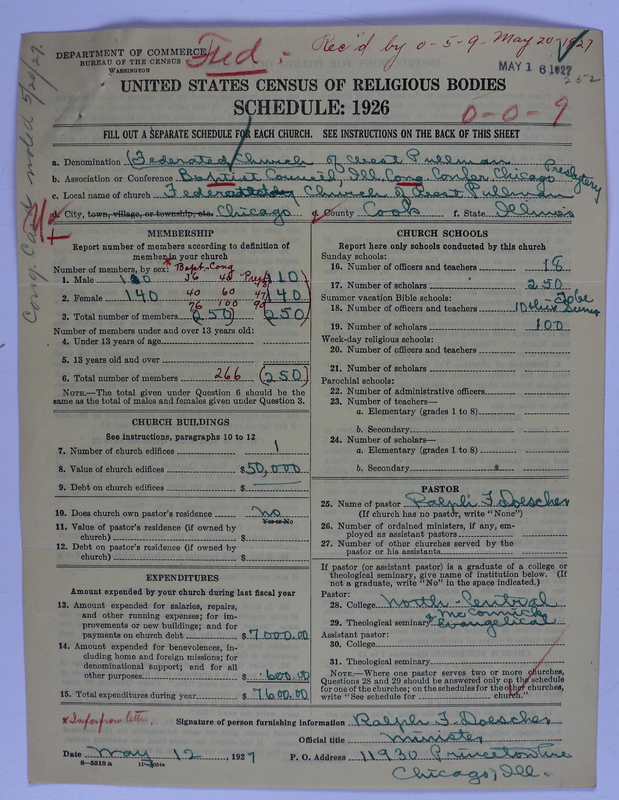 DEPARTMENT OF COMMERCE
BUREAU OF THE CENSUS
WASHINGTON
Fed.
Rec'd by 0-5-9. May 20 1927
MAY 16 1927
252
UNITED STATES CENSUS OF RELIGIOUS BODIES
SCHEDULE: 1926
0-0-9
Cong. Card noted 5/20/27.
FILL OUT A SEPARATE SCHEDULE FOR EACH CHURCH. SEE INSTRUCTIONS ON THE BACK OF THIS SHEET
a. Denomination (Federated Church of West Pullman
b. Association or Conference Baptist Council, Ill. Cong Confer Chicago Presbytery
c. Local name of church Federated Church of West Pullman
d. City, town, village, or township, etc. Chicago e. County Cook f. State Illinois
MEMBERSHIP
Report number of members according to definition of member in your church
Number of members, by sex: * Bapt- Cong Pres
1. Male 110 36 40 (110)
2. Female 140 40 60 47 (140)
76 100 90
3. Total number of members (250) (250)
Number of members under and over 13 years old:
4. Under 13 years of age
5. 13 years old and over
6. Total number of members 266 (250)
NOTE.—The total given under Question 6 should be the same as the total of males and females given under Question 3.
CHURCH BUILDINGS
See instructions, paragraphs 10 to 12
7. Number of church edifices 1
8. Value of church edifices $50,000
9. Debt on church edifices $
10. Does church own pastor's residence no
Yes or No
11. Value of pastor's residence (if owned by church) $
12. Debt on pastor's residence (if owned by church) $
EXPENDITURES
Amount expended by your church during last fiscal year
13. Amount expended for salaries, repairs, and other running expenses; for improvements or new buildings; and for payments on church debt $7000.00
14. Amount expended for benevolences, including home and foreign missions; for denominational support; and for all other purposes $600.00
15. Total expenditures during year $7600.00
CHURCH SCHOOLS
Report here only schools conducted by this church
Sunday schools:
16. Number of officers and teachers 18
17. Number of scholars 250
Summer vacation Bible schools: To be
18. Number of officers and teachers 10 this Summer
19. Number of scholars 100
Week-day religious schools:
20. Number of officers and teachers
21. Number of scholars
Parochial schools:
22. Number of administrative officers
23. Number of teachers—
a. Elementary (grades 1 to 8)
b. Secondary
24. Number of scholars—
a. Elementary (grades 1 to 8)
b. Secondary
PASTOR
25. Name of pastor Ralph F. Doescher
(If church has no pastor, write "None")
26. Number of ordained ministers, if any, employed as assistant pastors
27. Number of other churches served by the pastor or his assistants
If pastor (or assistant pastor) is a graduate of a college or theological seminary, give name of institution below. (If not a graduate, write "No" in the space indicated.)
Pastor:
28. College North-Central
29. Theological seminary & McCormick Evangelical
Assistant pastor:
30. College
31. Theological seminary
NOTE.—Where one pastor serves two or more churches, Questions 28 and 29 should be answered only on the schedule for one of the churches; on the schedules for the other churches, write "See schedule for church."
x Info from letter.
Signature of person furnishing information Ralph F. Doescher
Official title Minister
Date May 12, 1927 P. O. Address 11930 Princeton Ave
8—5518a
Chicago, Ill.